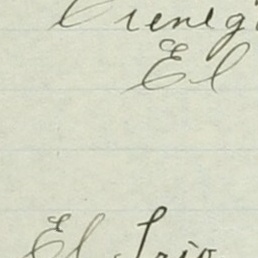 Cieneg
El
El Frio